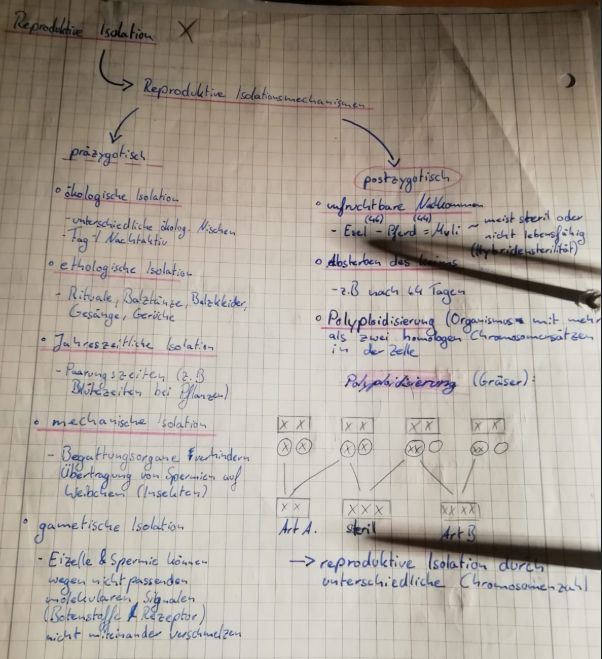 Reproduktive Isolation X
Reproduktive Isolationsmechanismen
präzygotisch
° ökologische Isolation
- unterschiedliche ökolog. Nischen
- Tag-/Nachtaktiv
° ethologische Isolation
- Rituale, Balztänze, Balzkleider,
Gesänge, Gerüche
° Jahreszeitliche Isolation
- Paarungszeiten (z.B
Blütezeiten bei Pflanzen)
° mechanische Isolation
- Begattungsorgane verhindern
Übertragung von Spermien auf
Weibchen (Insekten)
° gametische Isolation
- Eizelle & Spermie können
wegen nicht passenden
molekularen Signalen
(Botenstoffe / Rezeptor)
nicht miteinander verschmelzen
postzygotisch
° unfruchtbare Nachkommen
(46) (44)
- Esel - Pferd = Muli ~ meist steril oder
nicht lebensfähig
(Hybridensterilität)
° Absterben des Keimes
- z.B nach 64 Tagen
° Polyploidisierung (Organismus mit mehr
als zwei homologen Chromosomensätzen
in der Zelle
Polyploidisierung (Gräser):
X X X X X X X X
X X X X XX XX
X X X X X XX XX
Art A. steril Art B
→ reproduktive Isolation durch
unterschiedliche Chromosomenzahl